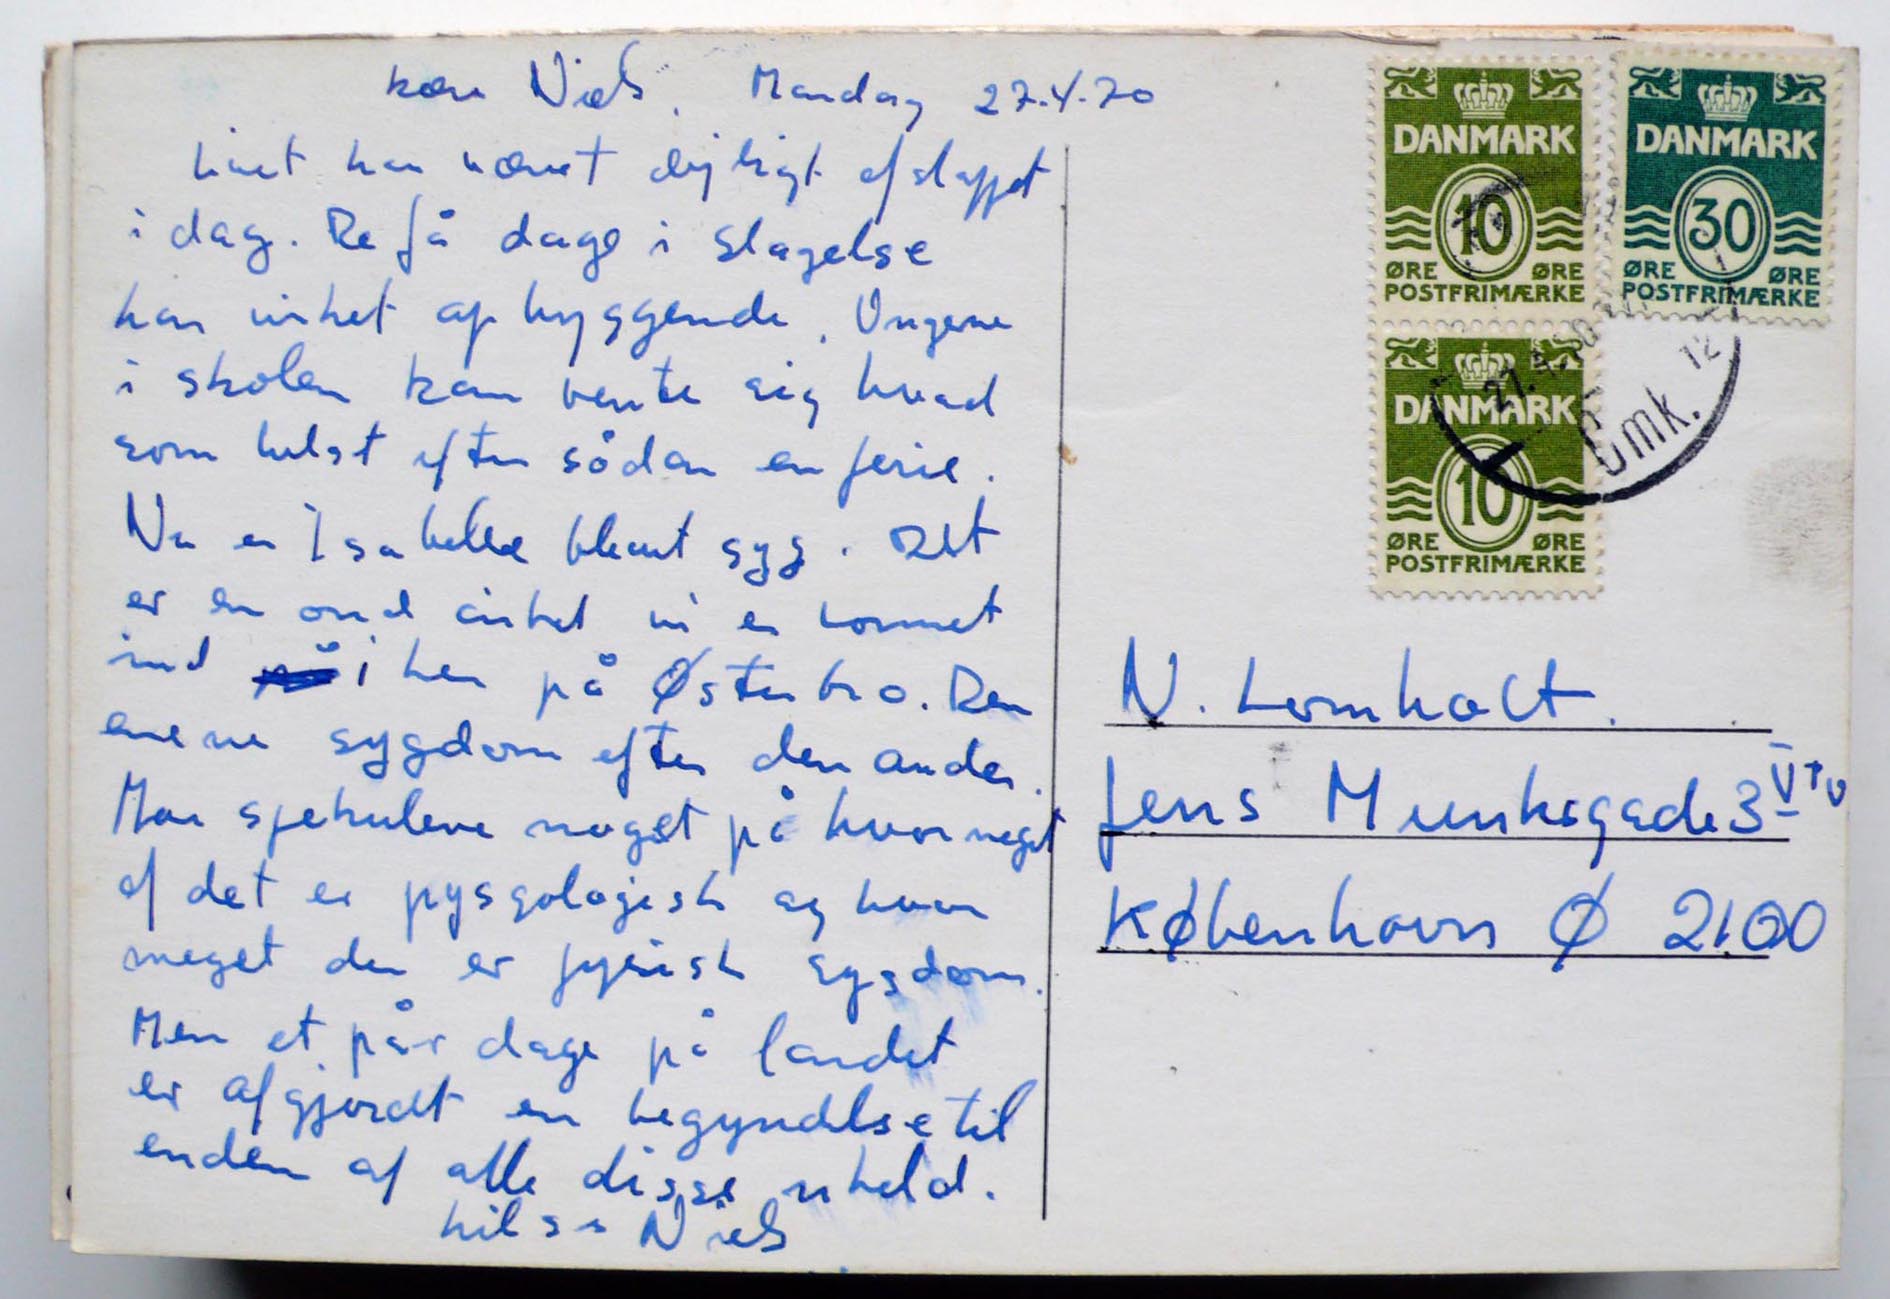 kære Niels, Mandag 27.4.70
Livet har været dejligt afslappet
i dag. De få dage i Slagelse
har virket op byggende. Ungerne
i skolen kan vente sig hvad
som helst efter sådan en ferie.
Nu er Isabelle blevet syg. Det
er en ond cirkel vi er kommet
ind i her på Østerbro. Den
enene sygdom efter den anden.
Man spekulere noget på hvor meget
af det er pysgologisk og hvor
meget der er fysisk sygdom.
Men et par dage på landet
er afgjordt en begyndelse til
enden af alle disse uheld.
hilsn Niels
DANMARK
10
ØRE ØRE
POSTFRIMÆRKE
DANMARK
30
ØRE ØRE
POSTFRIMÆRKE
DANMARK
10
ØRE ØRE
POSTFRIMÆRKE
27.4.
12
Omk.
N. Lomholt.
Jens Munksgade 3 V TV
København Ø 2100